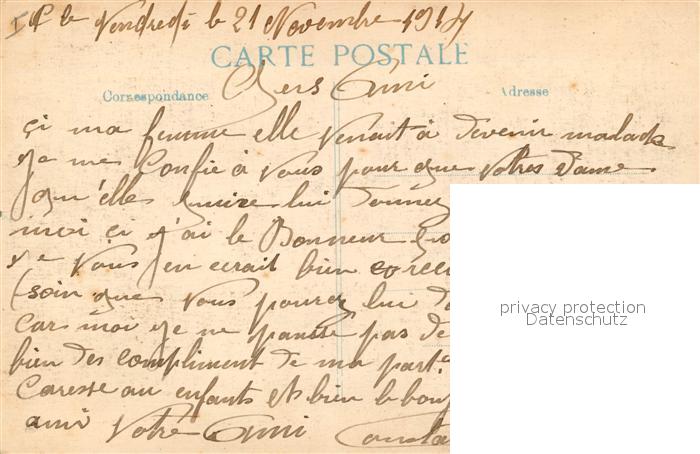 le Vendredi le 21 Novembre 1914
CARTE POSTALE
Chers Ami
Correspondance
Adresse
çi ma femme elle venait à devenir malade
je me confie à vous pour que votres dame
qu'elles lui donnez
moi çi j'ai le Bonneur
je vous en cerait bien
soin que vous pourez lui
Cars moi je ne pansse pas de
bien des compliment de ma part
Caresse au enfants et bien le bon
ami Votre Ami
privacy protection
Datenschutz